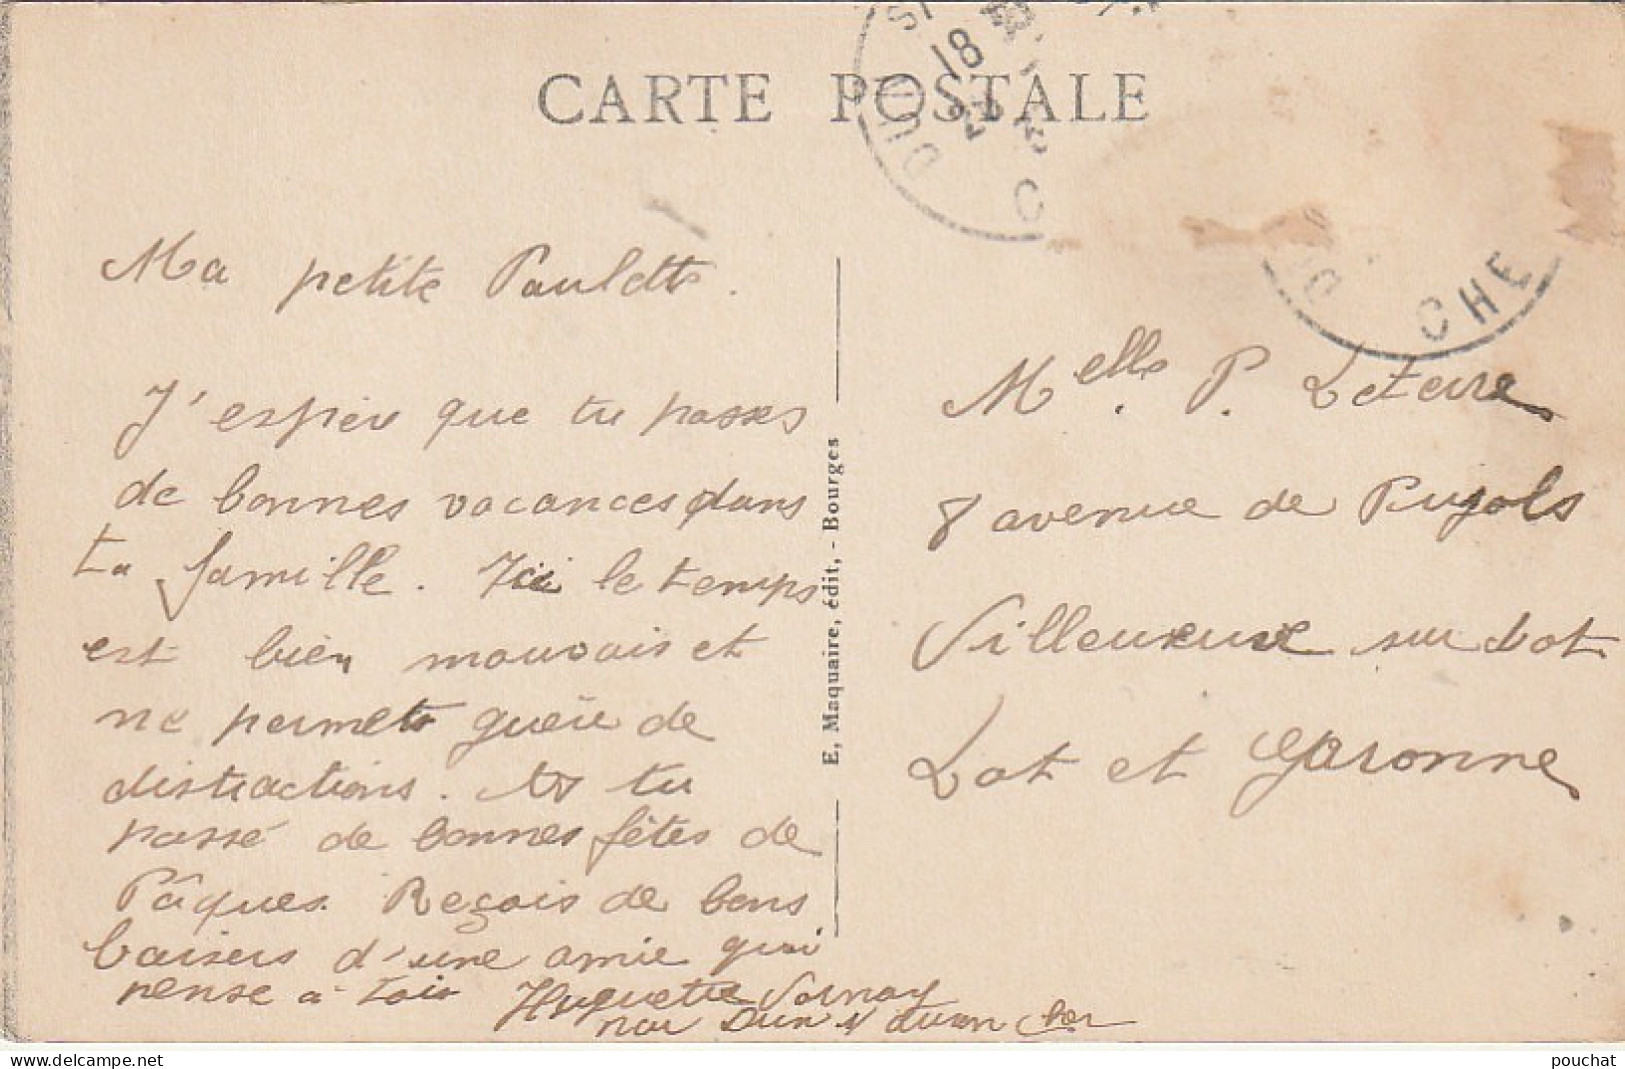 CARTE POSTALE
18
CHE
Ma petite Paulette.
J'espère que tu passes
de bonnes vacances dans
ta famille. Ici le temps
est bien mauvais et
ne permets guère de
distractions. As tu
passé de bonnes fêtes de
Pâques. Reçois de bons
baisers d'une amie qui
pense à toi Huguette
Dun s/ Auron Cher
E, Maquaire, édit, - Bourges
Melle. P. Leterre
8 avenue de Pujols
Villeuneuve sur Lot
Lot et Garonne
www.delcampe.net
pouchat